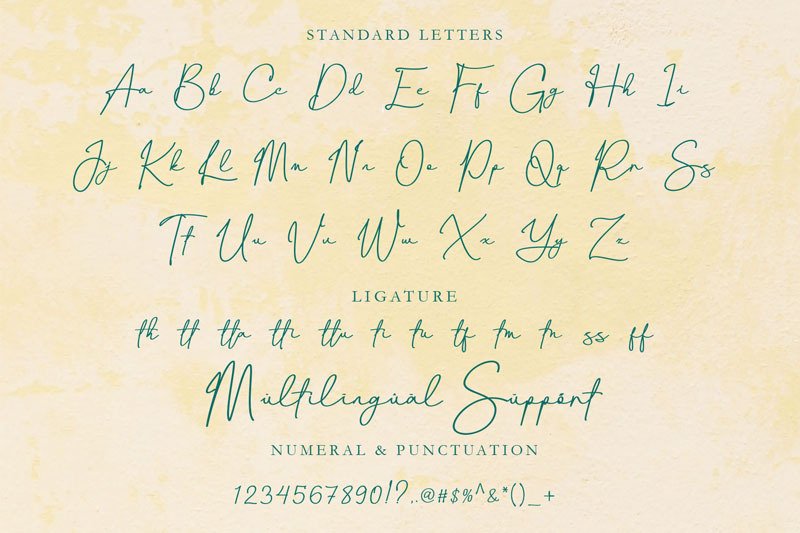 STANDARD LETTERS
Aa Bb Cc Dd Ee Ff Gg Hh Ii
Jj Kk Ll Mm Nn Oo Pp Qq Rr Ss
Tt Uu Vv Ww Xx Yy Zz
LIGATURE
th tt tta tti ttu ti tu tf tm tn ss ff
Múltilíngúál Súppórt
NUMERAL & PUNCTUATION
1234567890!?,.@#$%^&*()_+